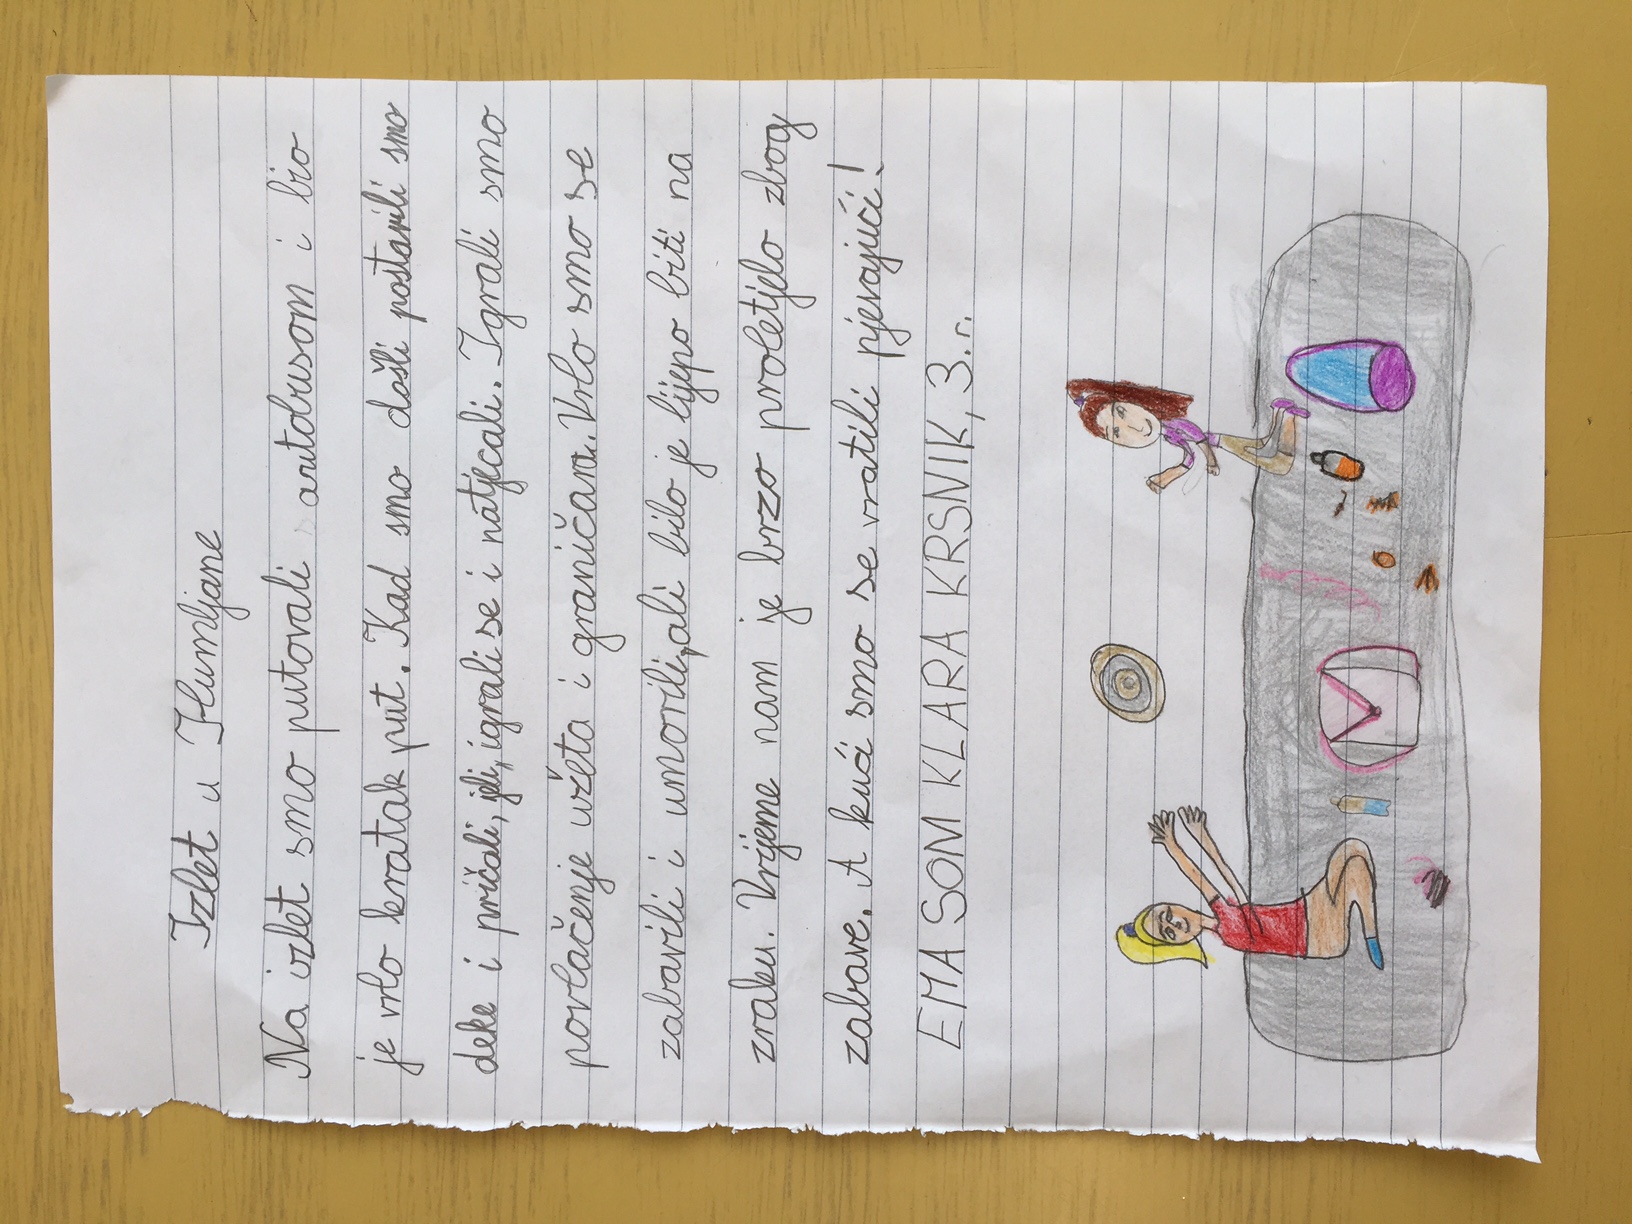 Izlet u Humljane
Na izlet smo putovali autobusom i bio
je vrlo kratak put. Kad smo došli postavili smo
deke i pričali, jeli, igrali se i natjecali. Igrali smo
povlačenje užeta i graničara. Vrlo smo se
zabavili i umorili, ali bilo je lijepo biti na
zraku. Vrijeme nam je brzo proletjelo zbog
zabave. A kući smo se vratili pjevajući!
EMA SOM KLARA KRSNIK, 3.r.